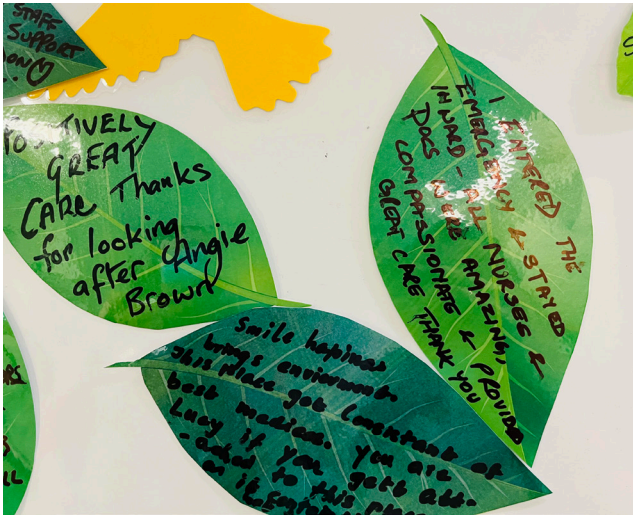 STAFF
SUPPORT
POSITIVELY
GREAT
CARE Thanks
for looking
after Angie
Brown
I ENTERED THE
EMERGENCY & STAYED
INWARD - ALL NURSES &
DOCS WERE AMAZING,
COMPASSIONATE & PROVIDED
GREAT CARE THANK YOU
Smile hapines
brings enviorment.
this Place got Consistant of
best medicine. you are
Lucy if you gett att-
-ended to this place